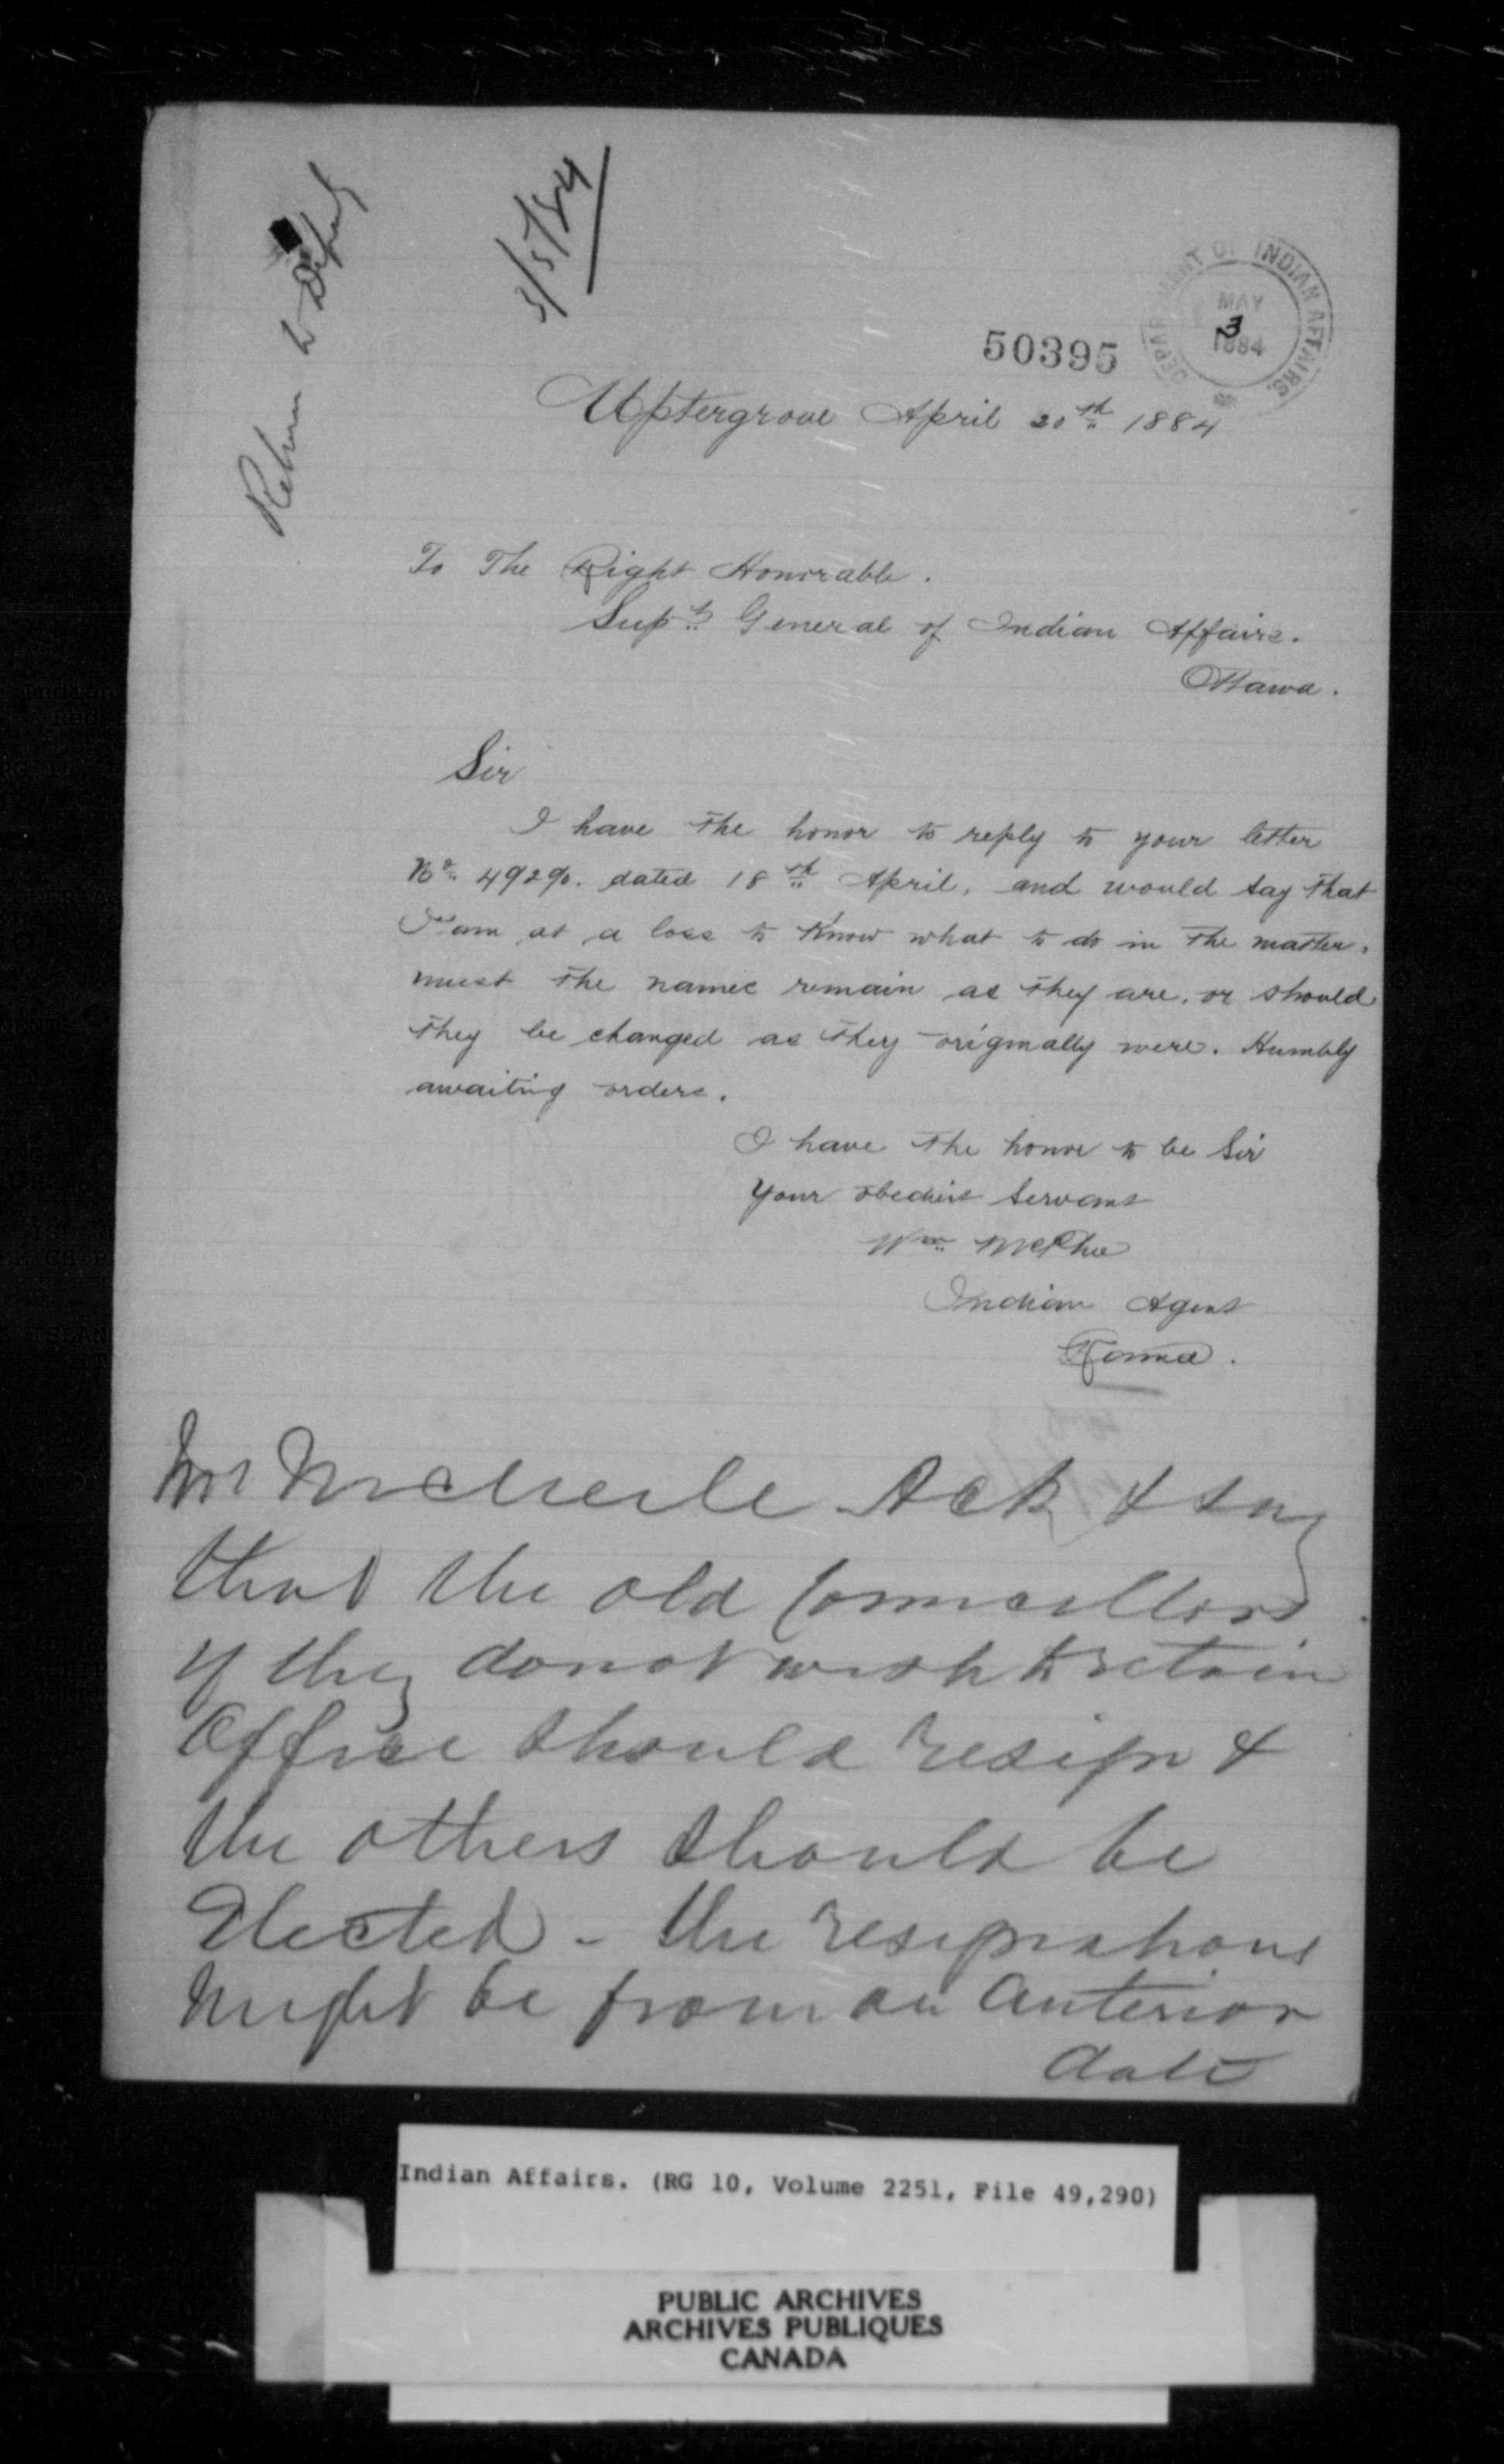 Return to Deputy
3/5/84
DEPARTMENT OF INDIAN AFFAIRS.
MAY
3
1884
50395
Uptergrove April 20th 1884
To The Right Honorable.
Supt. General of Indian Affairs.
Ottawa.
Sir
I have the honor to reply to your letter
No. 49290. dated 18th April, and would say that
I am at a loss to know what to do in the matter.
must the names remain as they are, or should
they be changed as they originally were. Humbly
awaiting orders.
I have the honor to be Sir
Your obedient Servant
Wm. McPhee
Indian Agent
Rama.
Mr Ack & say
that the old Councillors
if they do not wish to retain
Office should resign &
the others should be
Elected - the resignations
might be from an anterior
date
Indian Affairs. (RG 10, Volume 2251, File 49,290)
PUBLIC ARCHIVES
ARCHIVES PUBLIQUES
CANADA